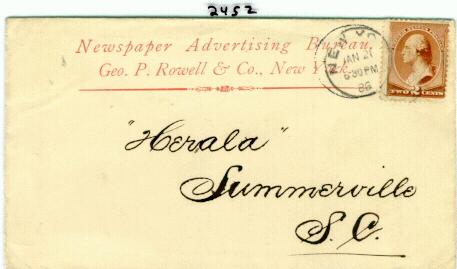 2452
Newspaper Advertising Bureau,
Geo. P. Rowell & Co., New York.
NEW YO
JAN 21
6-30 PM
86
TWO 2 CENTS
"Herald"
Summerville
S. C.